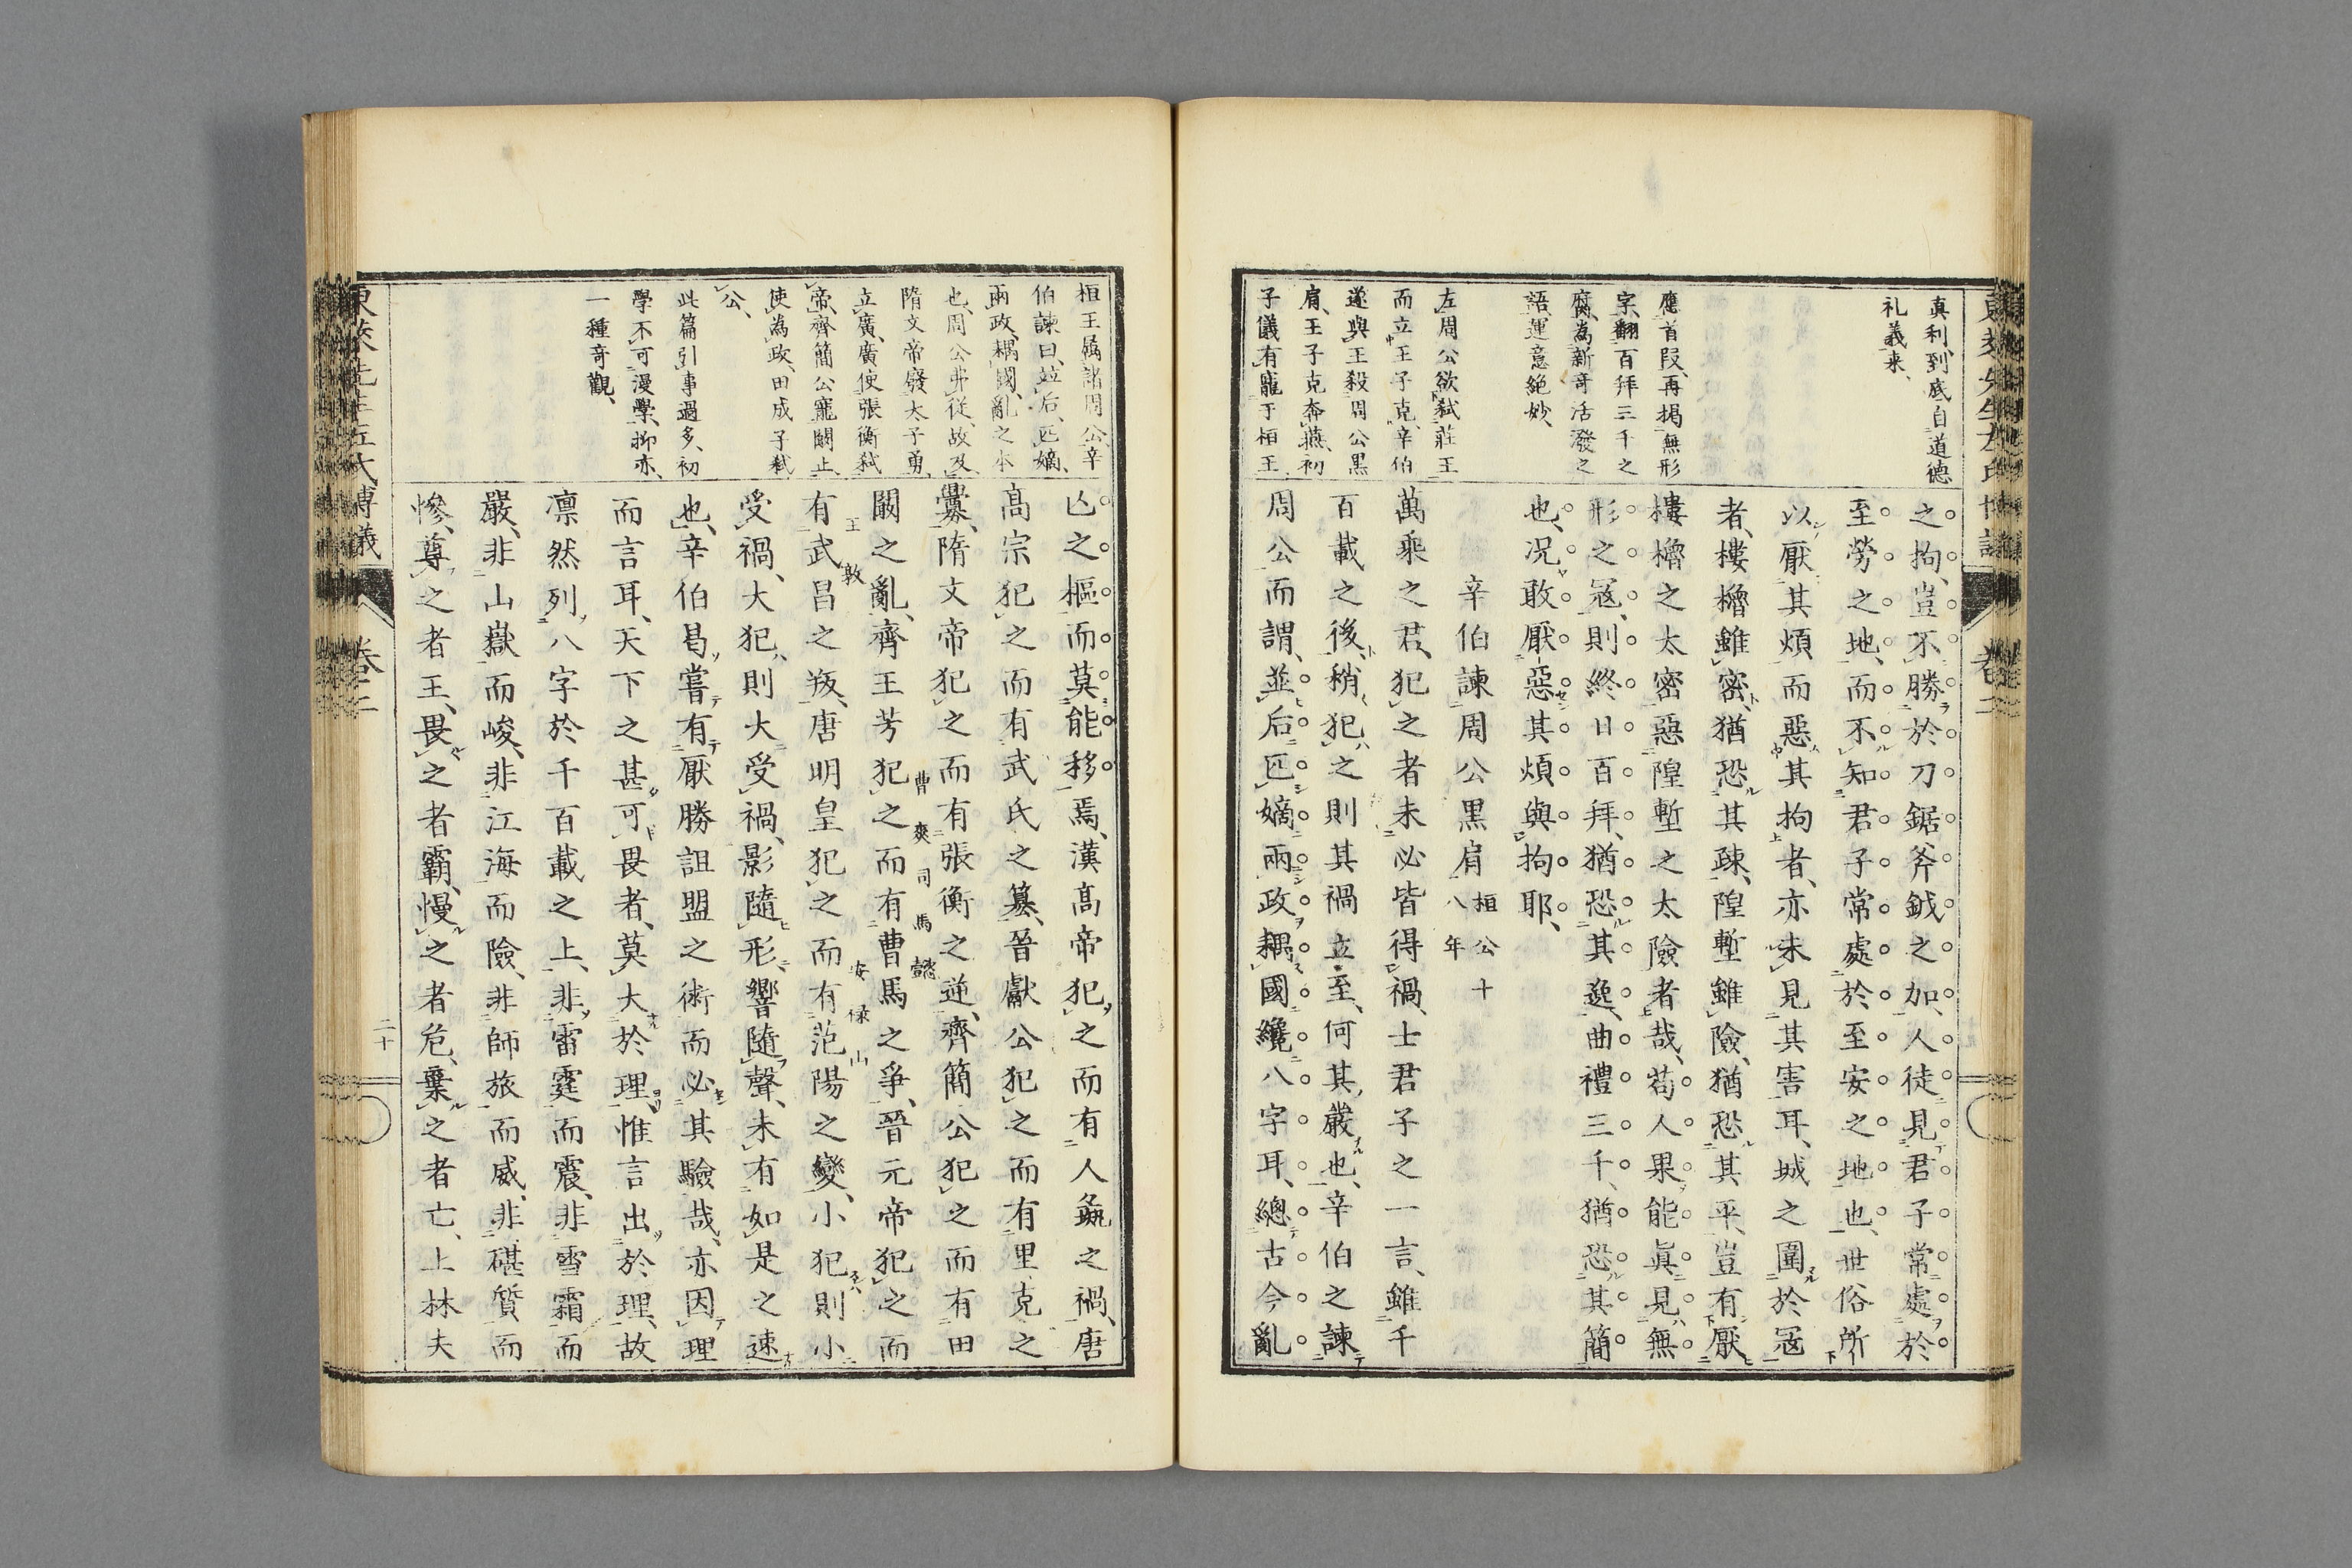 真利到底自道德
礼義来、
應首段、再揭無形
字、翻百拜三千之
腐、爲新奇活潑之
語、運意絶妙、
左周公欲弑莊王
而立王子克、辛伯
遂與王殺周公黑
肩、王子克奔燕、初
子儀有寵于桓王、
之拘、豈不勝於刀鋸斧鉞之加、人徒見君子常處於
至勞之地、而不知君子常處於至安之地也、世俗所
以厭其煩而惡其拘者、亦未見其害耳、城之圍於冦
者、樓櫓雖密、猶恐其疎、隍塹雖險、猶恐其平、豈有厭
樓櫓之太密、惡隍塹之太險者哉、苟人果能眞見無
形之冦、則終日百拜、猶恐其逸、曲禮三千、猶恐其簡
也、况敢厭惡其煩與拘耶、
辛伯諫周公黒肩 桓公十八年
萬乘之君、犯之者未必皆得禍、士君子之一言、雖千
百載之後、稍犯之則其禍立至、何其嚴也、辛伯之諫
周公而謂、並后匹嫡兩政耦國、纔八字耳、總古今亂
桓王屬諸周公、辛
伯諫曰、竝后、匹嫡、
兩政、耦國、亂之本
也、周公弗從、故及、
隋文帝廢太子勇、
立廣、廣使張衡弑
帝、齊簡公寵闞止、
使為政、田成子弑
公、
此篇引事過多、初
學不可漫學、抑亦
一種奇觀、
亾之樞而莫能移焉、漢高帝犯之而有人彘之禍、唐
高宗犯之而有武氏之簒、晉獻公犯之而有里克之
釁、隋文帝犯之而有張衡之逆、齊簡公犯之而有田
闞之亂、齊王芳犯之而有曹馬之爭、晉元帝犯之而
曹爽 司馬懿
有武昌之叛、唐明皇犯之而有范陽之變、小犯則小
王敦 安禄山
受禍、大犯則大受禍、影隨形、響隨聲、未有如是之速
也、辛伯曷嘗有厭勝詛盟之術而必其驗哉、亦因理
而言耳、天下之甚可畏者、莫大於理、惟言出於理、故
凛然列八字於千百載之上、非雷霆而震、非雪霜而
嚴、非山嶽而峻、非江海而險、非師旅而威、非碪質而
慘、尊之者王、畏之者霸、慢之者危、棄之者亡、上林夫
東萊先生左氏博議
卷二
二十